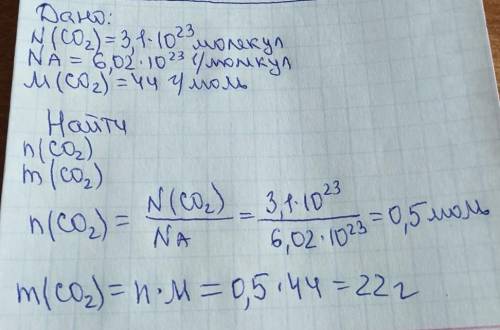 Дано:
N(CO₂)=3,1·10²³ молекул
NA = 6,02·10²³ г/молкул
M(CO₂)=44 г/моль
Найти
n(CO₂)
m(CO₂)
n(CO₂) = N(CO₂)/NA = 3,1·10²³/6,02·10²³ = 0,5 моль
m(CO₂)= n·M = 0,5·44 = 22 г